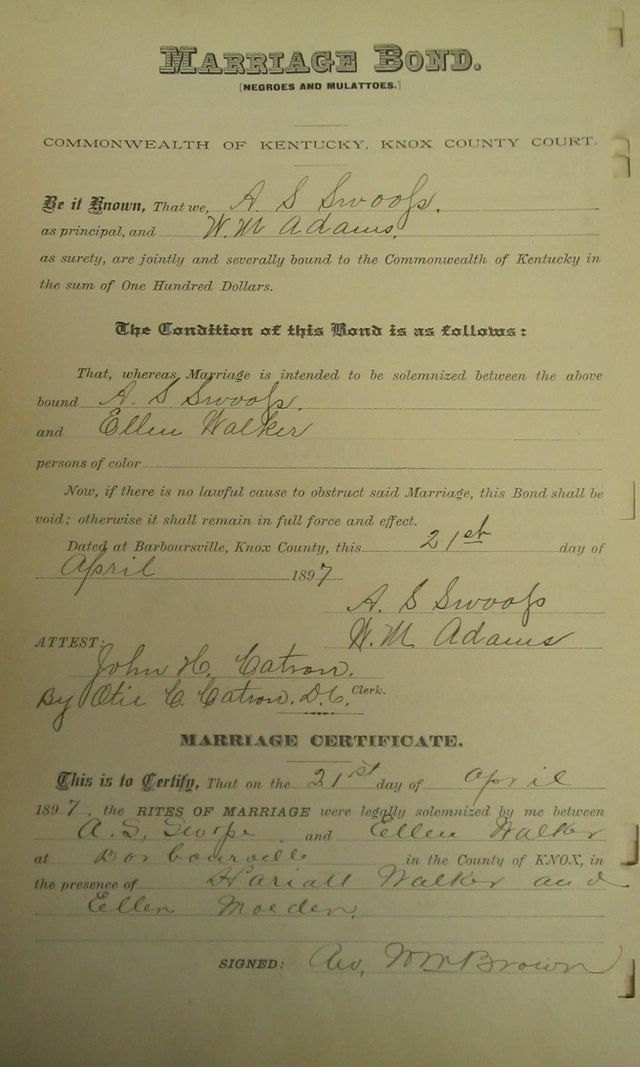 MARRIAGE BOND.
[NEGROES AND MULATTOES.]
COMMONWEALTH OF KENTUCKY, KNOX COUNTY COURT.
Be it Known, That we, A. S Swoops.
as principal, and W. M Adams.
as surety, are jointly and severally bound to the Commonwealth of Kentucky in
the sum of One Hundred Dollars.
The Condition of this Bond is as follows:
That, whereas Marriage is intended to be solemnized between the above
bound A. S Swoops.
and Ellen Walker
persons of color
Now, if there is no lawful cause to obstruct said Marriage, this Bond shall be
void; otherwise it shall remain in full force and effect.
Dated at Barboursville, Knox County, this 21st day of
April 1897
A. S Swoops
W. M Adams
ATTEST:
John H. Catron.
By Otie C. Catron. D.C. Clerk.
MARRIAGE CERTIFICATE.
This is to Certify, That on the 21st day of April
1897, the RITES OF MARRIAGE were legally solemnized by me between
A. S. Swope and Ellen Walker
at in the County of KNOX, in
the presence of Walker and
Ellen
SIGNED: Wm Brown